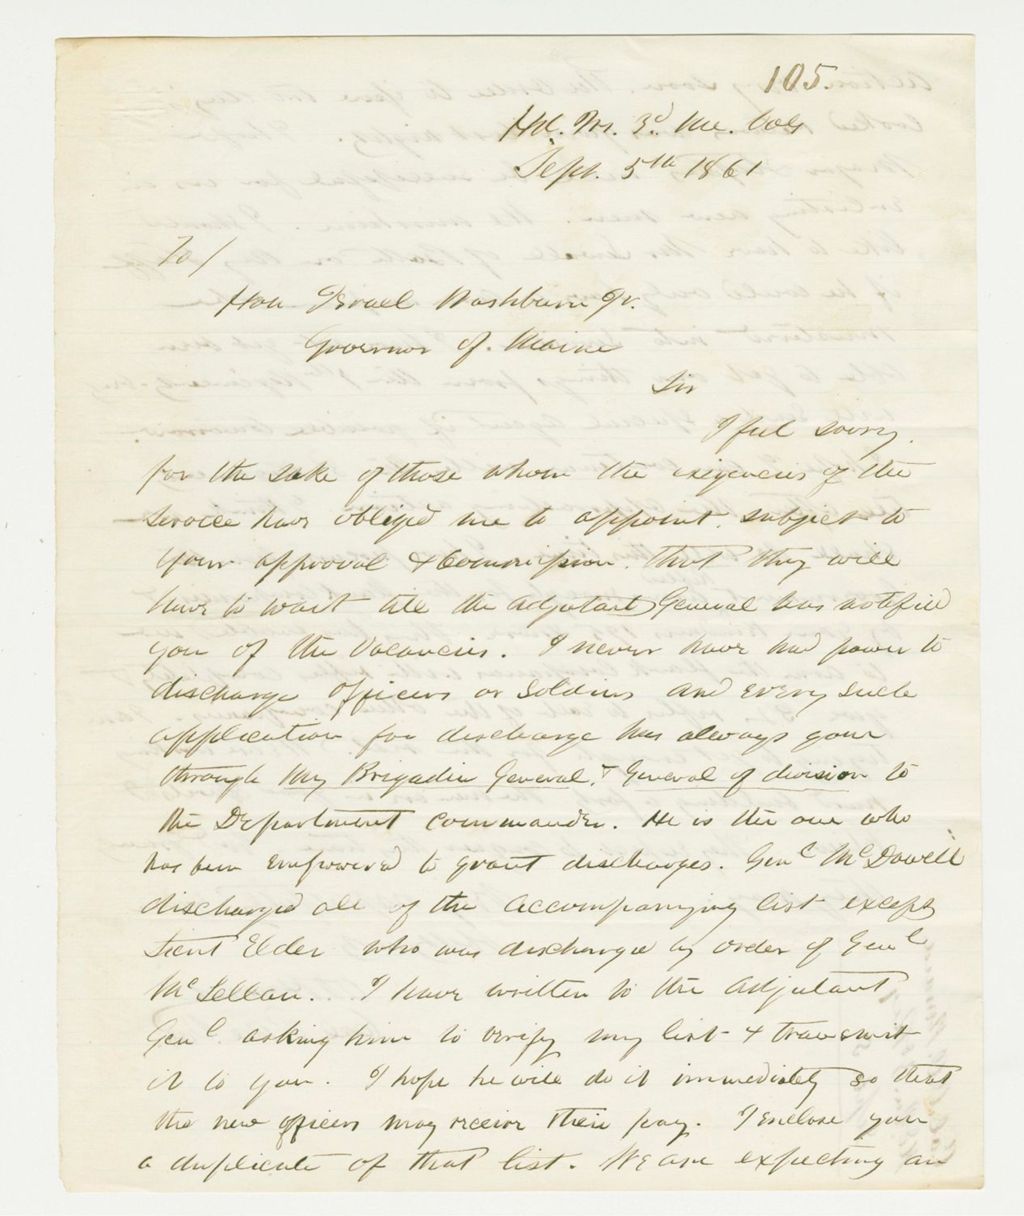 105.
Hd. Qrs. 3d. Me. Vols
Sept. 5th 1861
To/
Hon Israel Washburn Jr.
Governor of Maine
Sir
I feel sorry
for the sake of those whom the exigencies of the
service have obliged me to appoint, subject to
your approval & Commission, that they will
have to wait till the Adjutant General has notified
you of the Vacancies. I never have had power to
discharge officers or soldiers and every such
application for discharge has always gone
through my Brigadier General, & General of division to
the Department Commander. He is the one who
has been empowered to grant discharges. Genl McDowell
discharged all of the accompanying list except
Lieut Elder who was discharged by order of Genl
McLellan. I have written to the Adjutant
Genl. asking him to verify my list & transmit
it to you. I hope he will do it immediately so that
the new officers may receive their pay. I enclose you
a duplicate of that list. We are expecting an